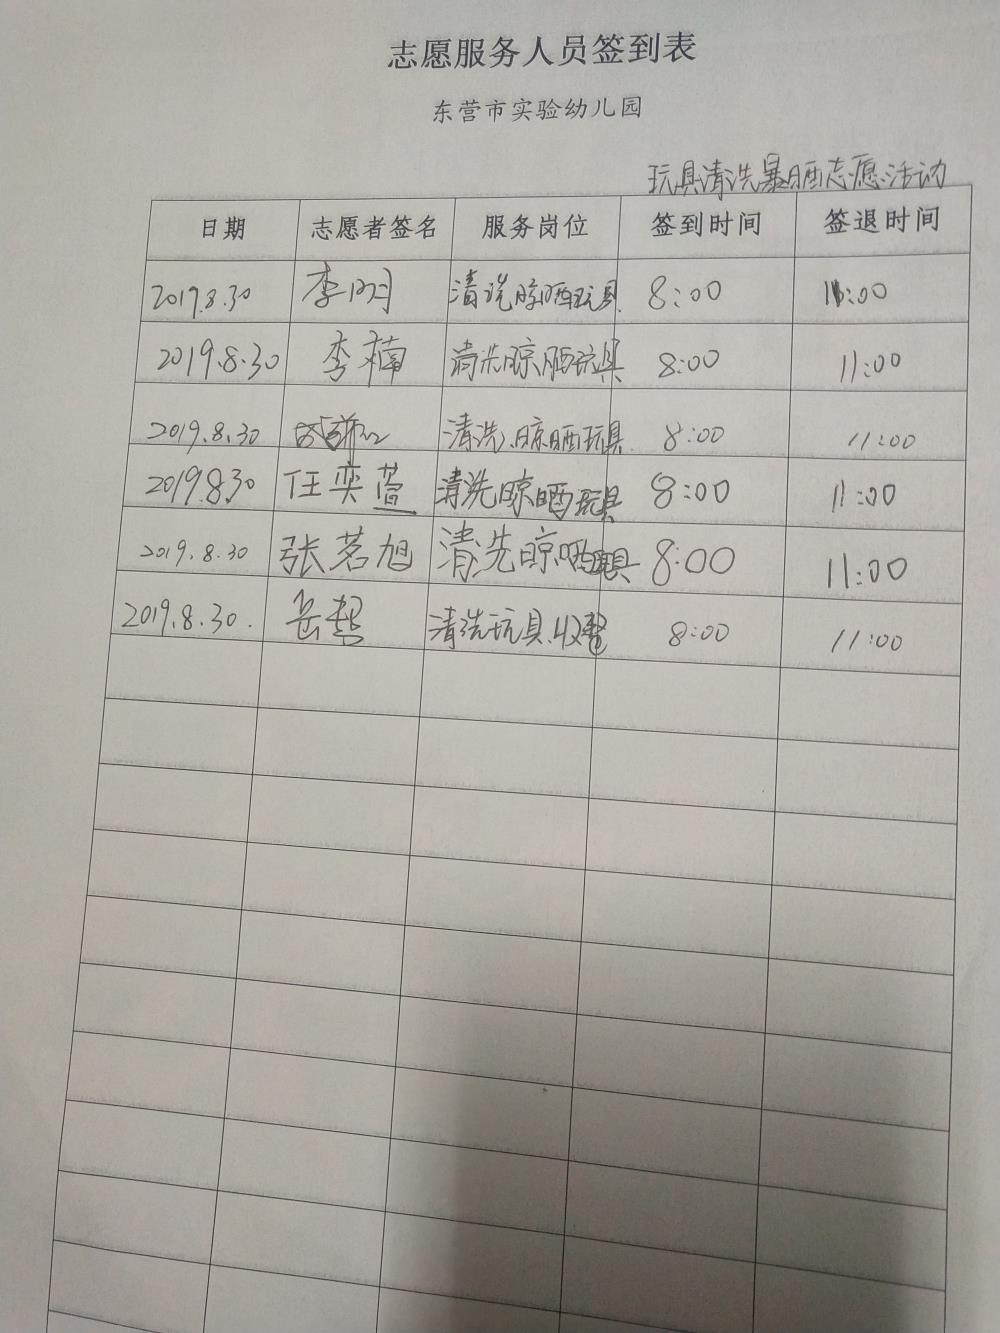 志愿服务人员签到表
东营市实验幼儿园
玩具清洗暴晒志愿活动
日期 志愿者签名 服务岗位 签到时间 签退时间
2019.8.30 李 清洗晾晒玩具 8:00 11:00
2019.8.30 李楠 清洗晾晒玩具 8:00 11:00
2019.8.30 清洗晾晒玩具 8:00 11:00
2019.8.30 任奕萱 清洗晾晒玩具 8:00 11:00
2019.8.30 张茗旭 清洗晾晒玩具 8:00 11:00
2019.8.30. 岳 清洗玩具、收整 8:00 11:00